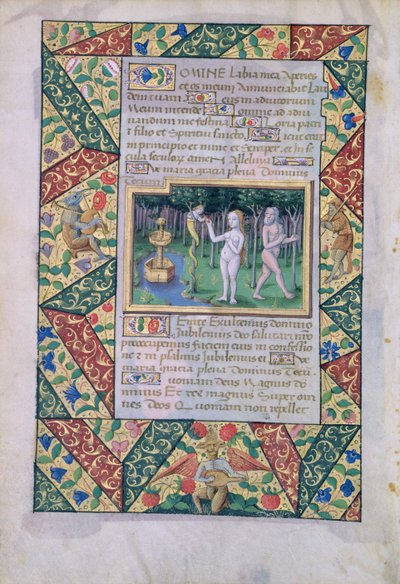 DOMINE Labia mea Aperies
et os meum Annunciabit Lau
dem tuam. Deus in adiutorium
Meum intende Domine ad adiu
uandum me festina Gloria patri
et filio et Spiritui sancto. Sicut erat
in principio et nunc et Semper. et in se
cula seculorum amen Alleluia
Aue maria gracia plena Dominus
Tecum
Venite Exultemus domino
Jubilemus deo salutari nro
preoccupemus faciem eius in confessio
ne z in psalmis Jubilemus ei Aue
maria gracia plena Dominus Tecu
Quoniam deus Magnus do
minus Et rex magnus Super om
nes deos Quoniam non repellet